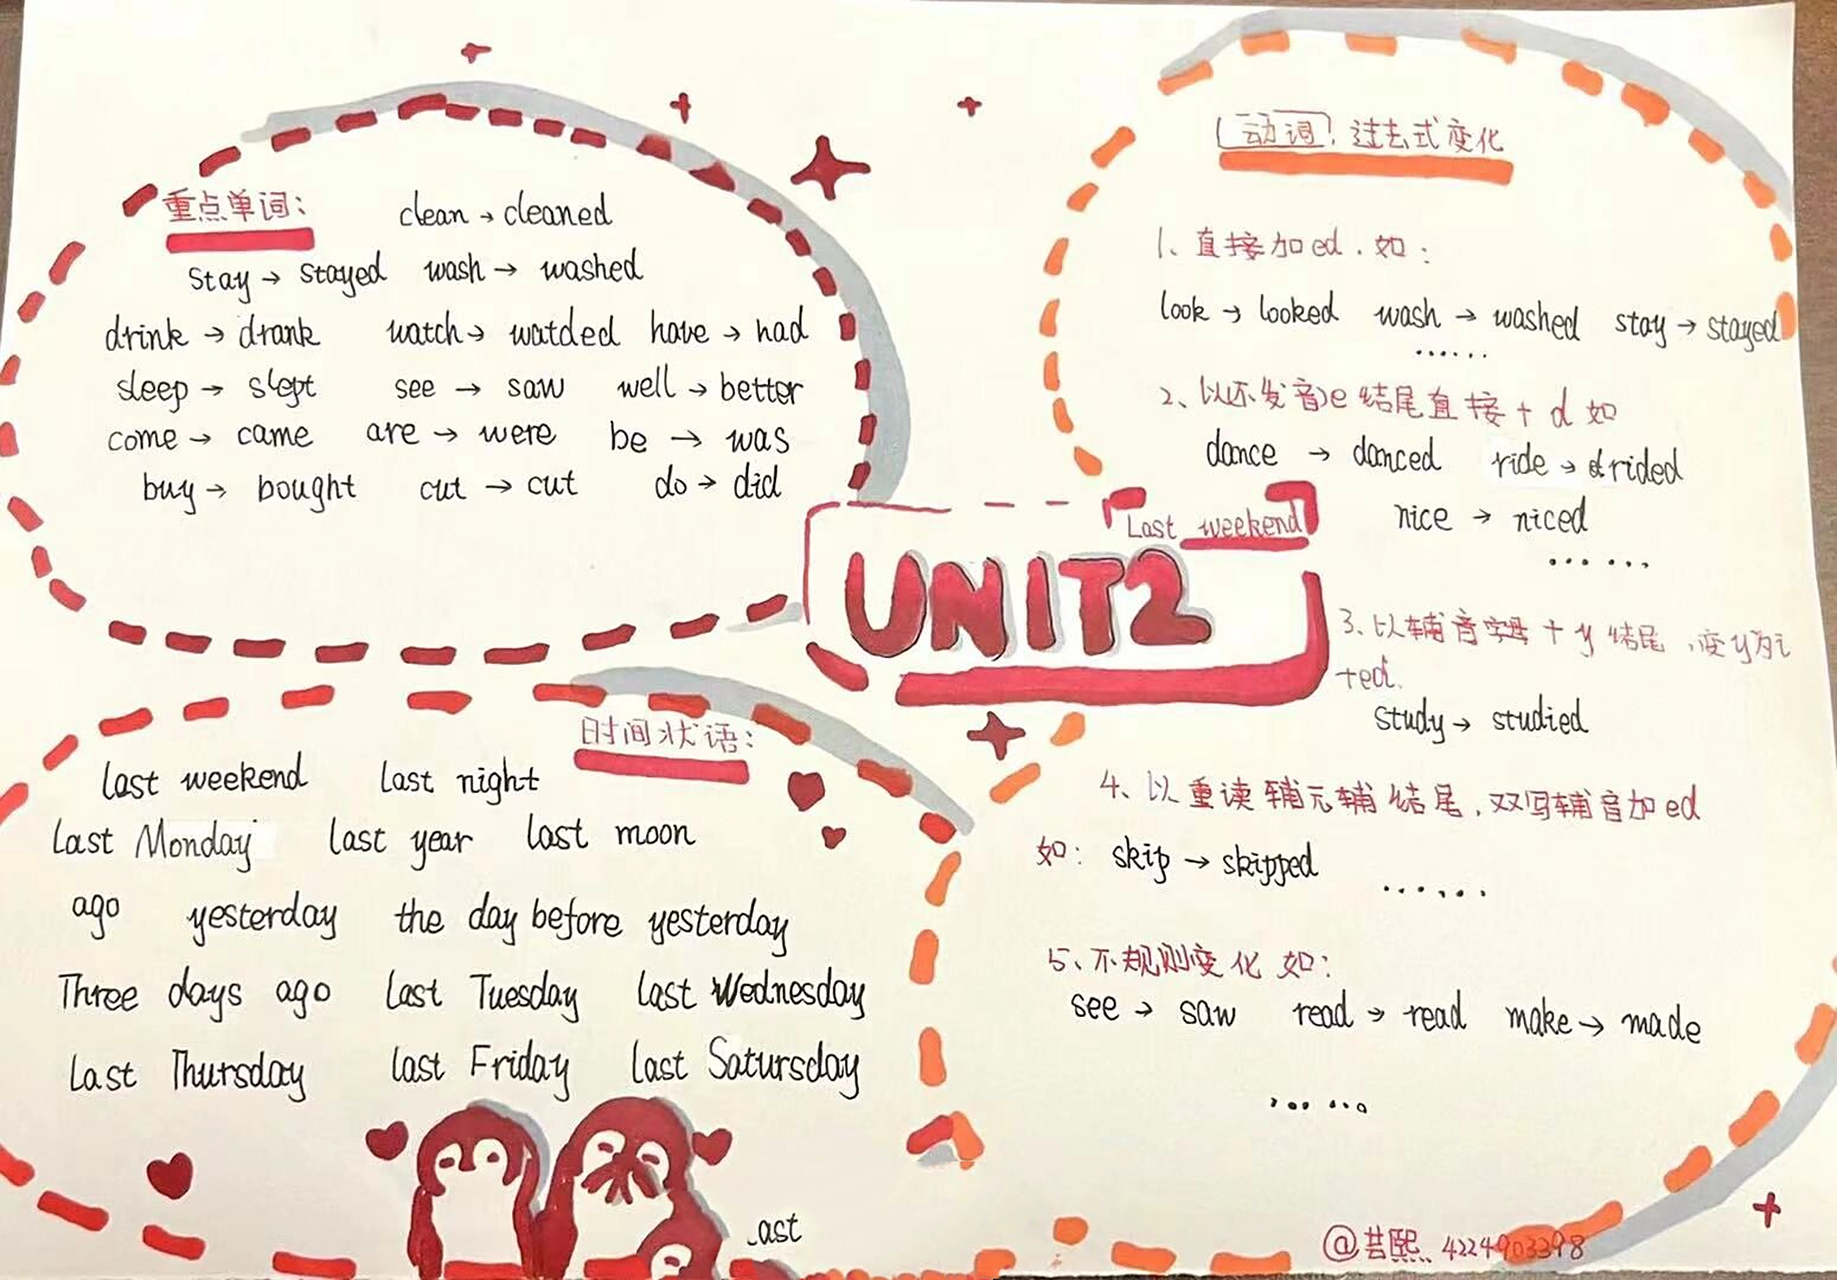 重点单词:
clean → cleaned
stay → stayed wash → washed
drink → drank watch → watded have → had
sleep → slept see → saw well → better
come → came are → were be → was
buy → bought cut → cut do → did
Last weekend
UNIT2
时间状语:
last weekend last night
Last Monday last year last moon
ago yesterday the day before yesterday
Three days ago Last Tuesday last Wednesday
Last Thursday last Friday last Satursday
ast
动词, 过去式变化
1、直接加ed.如:
look → looked wash → washed stay → stayed
......
2、以不发音e结尾直接+d如
dance → danced ride → drided
nice → niced
......
3、以辅音字母+y结尾,变y为i
+ed.
study → studied
4、以重读辅元辅结尾,双写辅音加ed
如: skip → skipped ......
5、不规则变化 如:
see → saw read → read make → made
......
@芸熙 4224903398